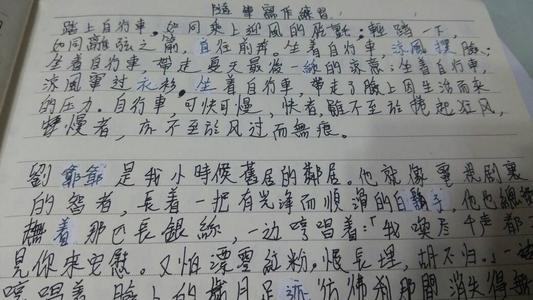 隨筆寫作練習
踏上自行車，如同乘上迎風的，輕踏一下，
如同離弦之箭，自往前奔。坐着自行車，涼風撲臉；
坐着自行車，帶走夏天最後一線的涼意；坐着自行車，
涼風單过衣衫。坐着自行車，帶走了臉上因生活而來
的压力。自行車，可快可慢，快者，雖不至於捲起狂风，
慢者，亦不至於风过而無痕。
劉爺爺是我小時候舊居的鄰居。他就像電視劇裏
的智者，長着一把有光泽而順滑的白鬍子，他
撫着那巴長銀絲，一边哼唱着：「我喚 千声都
見你來安慰。又怕漂零紅粉，慢長理，胡不归。」一
哼唱着，臉上的歲月足迹彷彿剎那間消失得無